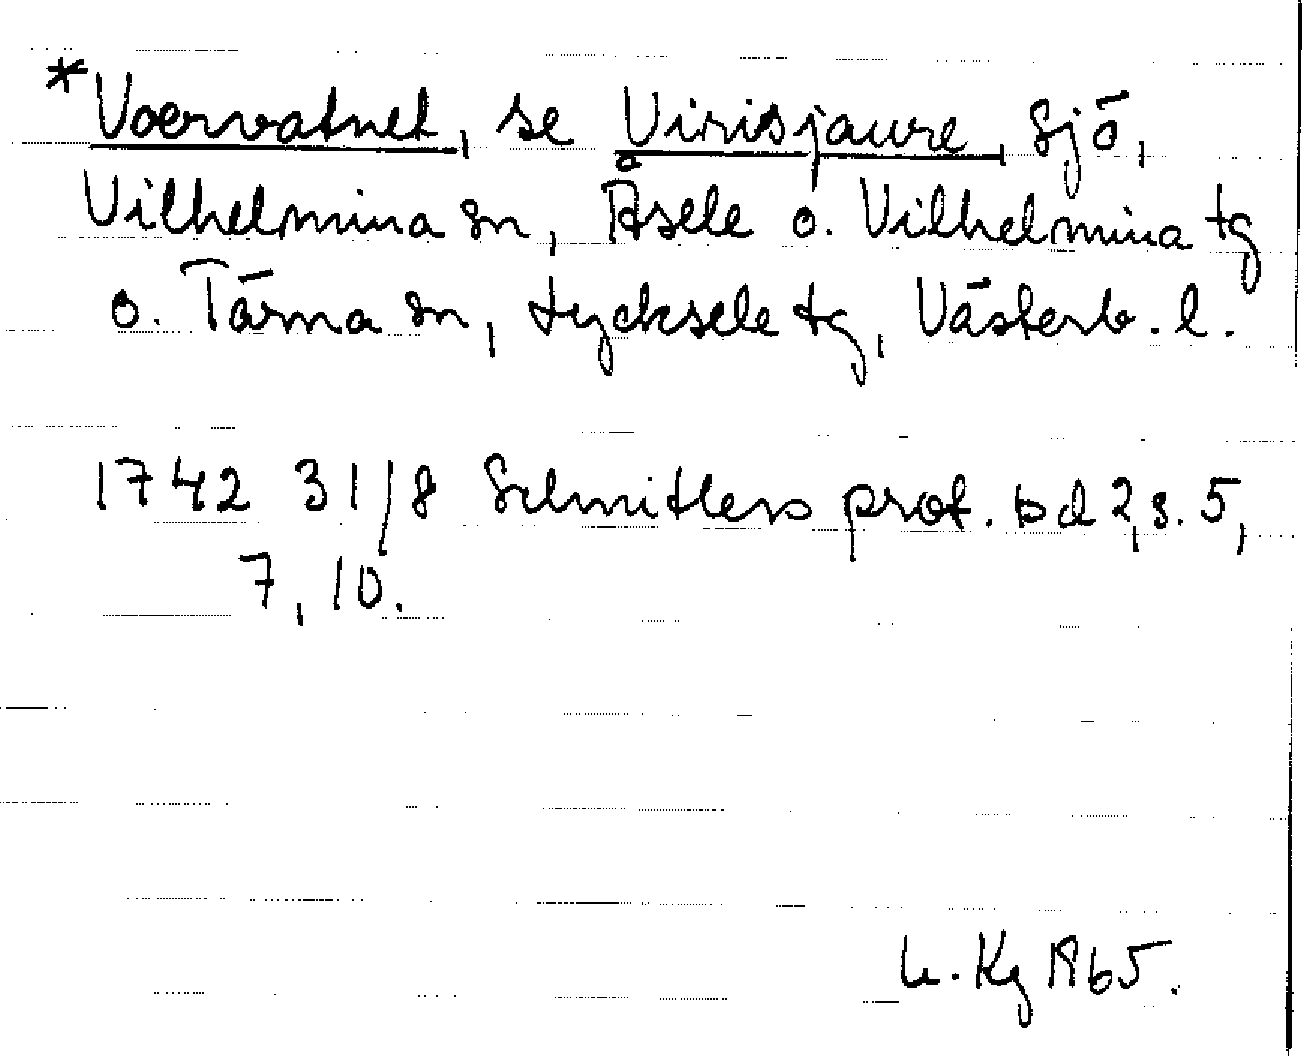 *Voervatnet, se Virisjaure, sjö,
Vilhelmina sn, Åsele o. Vilhelmina tg
o. Tärna sn, Lycksele tg, Västerb. l.
1742 31/8 Schnitlers prot. bd 2, s. 5,
7, 10.
Kg 1965.